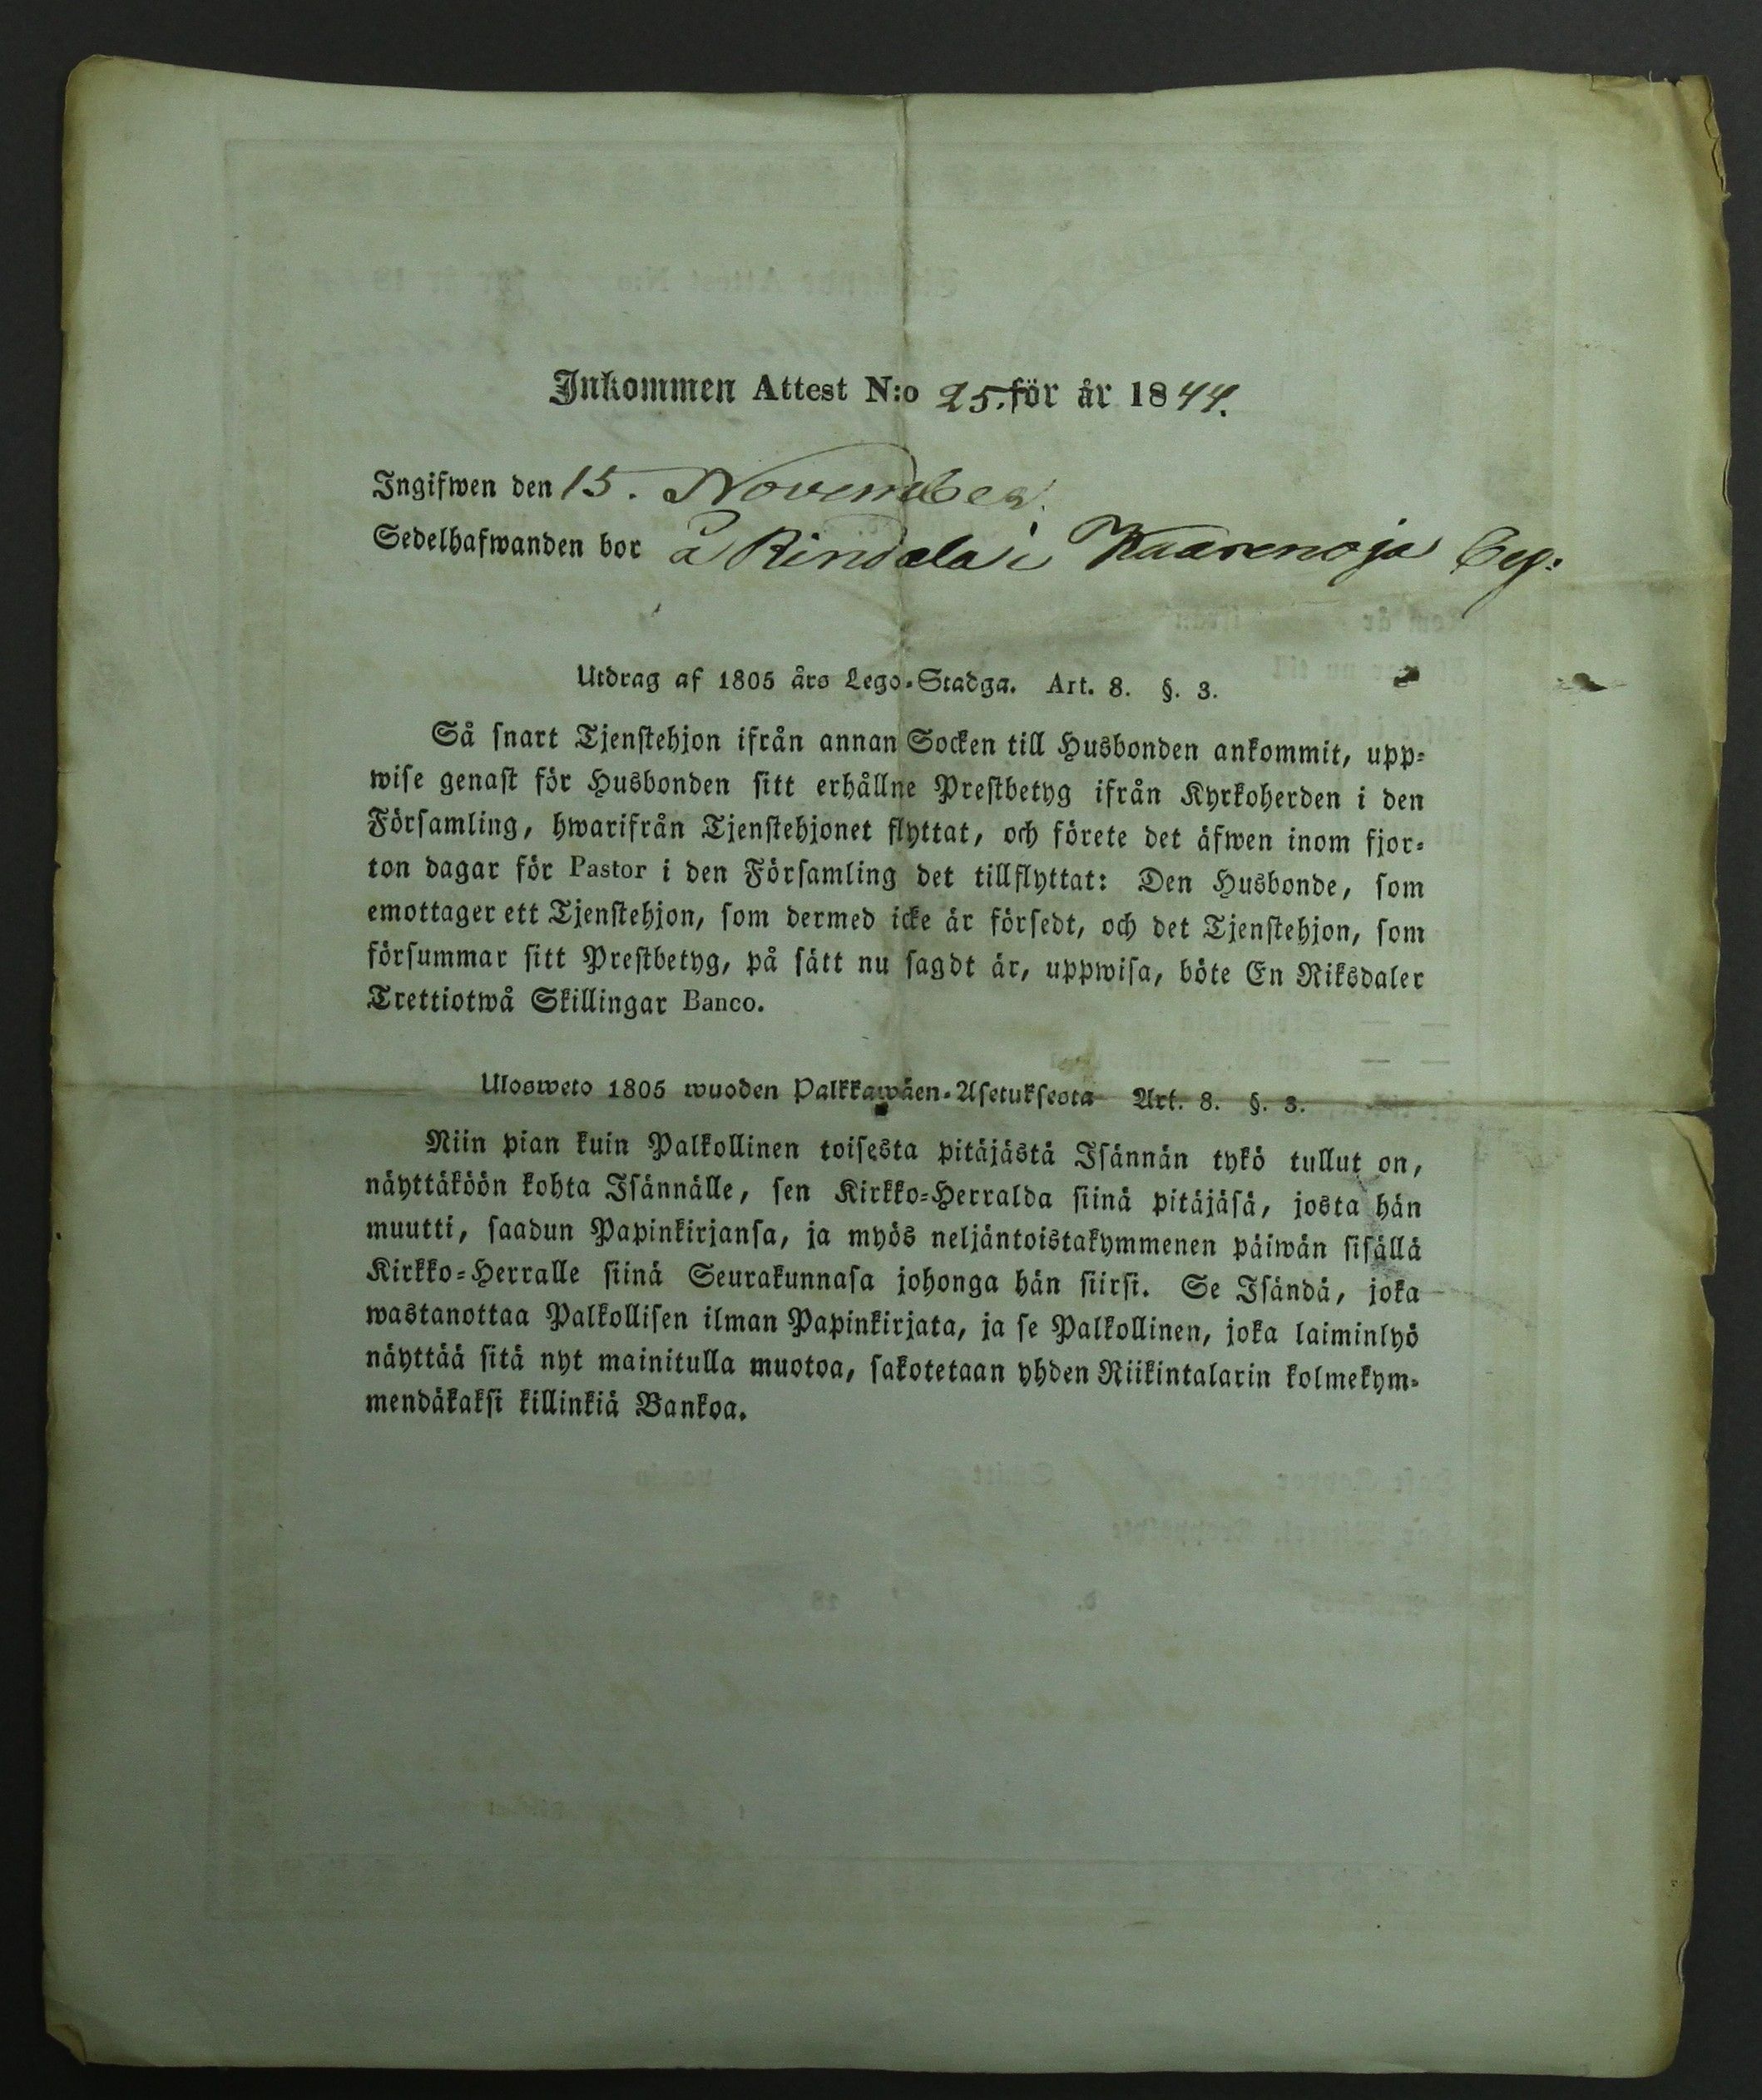 Inkommen Attest N:o 25. för år 1844.
Ingifwen den 15. November.
Sedelhafwanden bor å Rindala i Kaarenoja By:
Utdrag af 1805 års Lego-Stadga. Art. 8. §. 3.
Så snart Tjenstehjon ifrån annan Socken till Husbonden ankommit, upp-
wise genast för Husbonden sitt erhållne Prestbetyg ifrån Kyrkoherden i den
Församling, hwarifrån Tjenstehjonet flyttat, och förete det äfwen inom fjor-
ton dagar för Pastor i den Församling det tillflyttat: Den Husbonde, som
emottager ett Tjenstehjon, som dermed icke är försedt, och det Tjenstehjon, som
försummar sitt Prestbetyg, på sätt nu sagdt är, uppwisa, böte En Riksdaler
Trettiotwå Skillingar Banco.
Ulosweto 1805 wuoden Palkkawäen-Asetuksesta Art. 8. §. 3.
Niin pian kuin Palkollinen toisesta pitäjästä Isännän tykö tullut on,
näyttäköön kohta Isännälle, sen Kirkko-Herralda siinä pitäjäsä, josta hän
muutti, saadun Papinkirjansa, ja myös neljäntoistakymmenen päiwän sisällä
Kirkko-Herralle siinä Seurakunnasa johonga hän siirsi. Se Isändä, joka
wastanottaa Palkollisen ilman Papinkirjata, ja se Palkollinen, joka laiminlyö
näyttää sitä nyt mainitulla muotoa, sakotetaan yhden Riikintalarin kolmekym-
mendäkaksi killinkiä Bankoa.